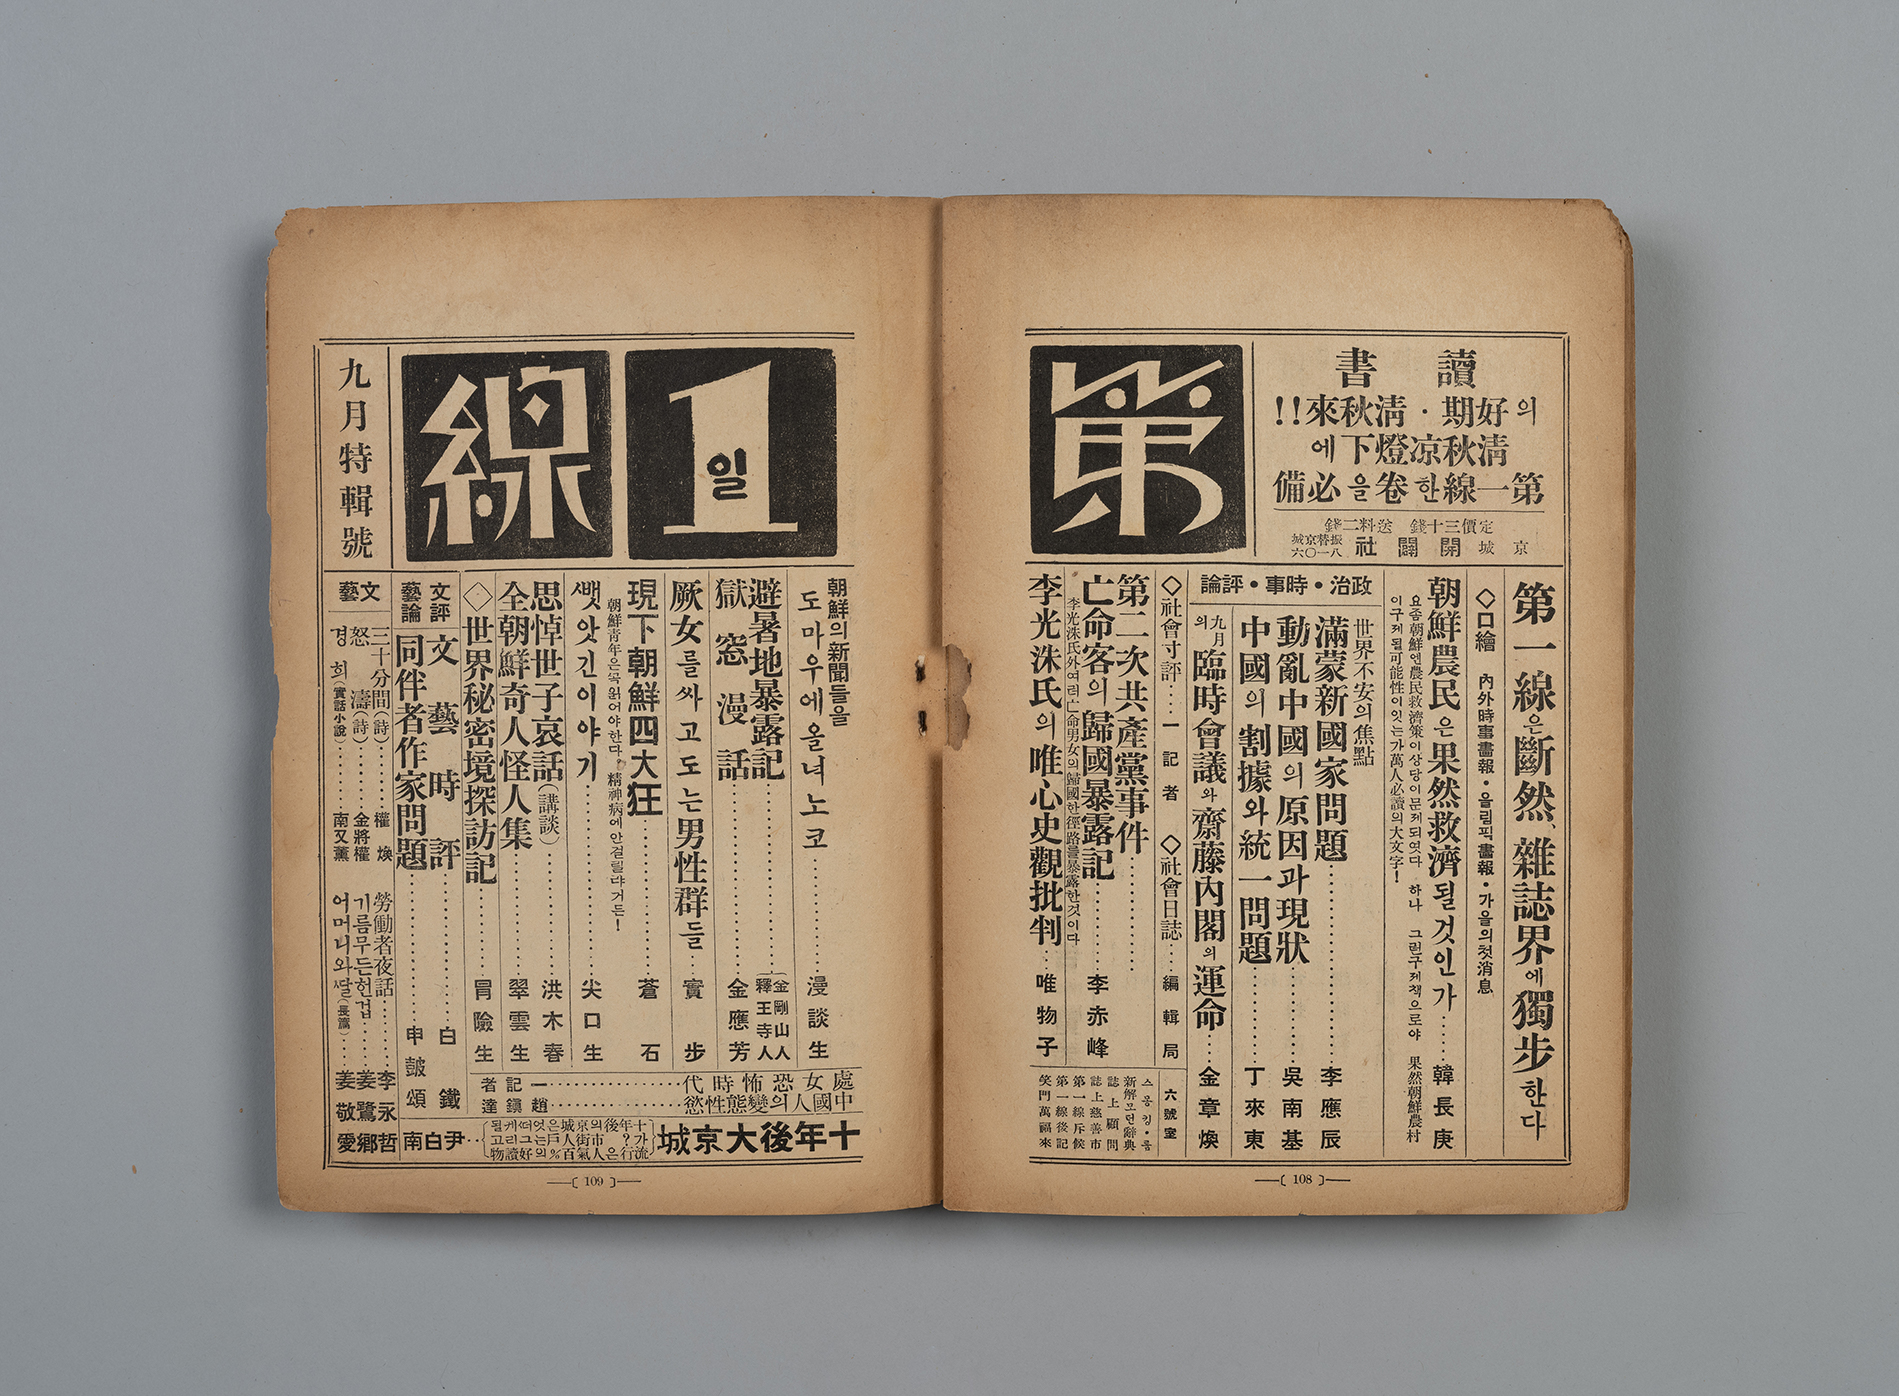 第
1
일
線
九月特輯號
讀書
의好期·淸秋來!!
淸秋凉燈下에
第一線한卷을必備
定價三十錢 送料二錢
京城 開闢社 振替京城八一〇六
第一線은斷然、雜誌界에獨步한다
◇口繪 內外時事畵報·올림픽畵報·가을의첫消息
朝鮮農民은果然救濟될것인가····韓長庚
요즘朝鮮엔農民救濟策이상당이문제되엿다 하나 그럼구제책으로야 果然朝鮮農村
이구제될可能性이잇는가萬人必讀의大文字!
政治·時事·評論
世界不安의焦點
滿蒙新國家問題·········李應辰
動亂中國의原因과現狀·········吳南基
中國의割據와統一問題·········丁來東
九月의臨時會議와齋藤內閣의運命···金章煥
◇社會寸評····一記者 ◇社會日誌···編輯局
第二次共產黨事件·········
亡命客의歸國暴露記·········李赤峰
李光洙氏外여러亡命男女의歸國한徑路를暴露한것이다
李光洙氏의唯心史觀批判···唯物子
六號室
스몽킹·룸
新解모던辭典
誌上顧問
誌上慈善市
第一線斥候
第一線後記
笑門萬福來
〔108〕
朝鮮의新聞들을
도마우에올녀노코·········漫談生
避暑地暴露記·········(金剛山人 釋王寺人
獄窓漫話·········金應芳
厥女를싸고도는男性群들 實步
現下朝鮮四大狂·········蒼石
朝鮮青年은꼭읽어야한다。精神病에안걸릴랴거든!
뺏앗긴이야기·········尖口生
思悼世子哀話(講談)·········洪木春
全朝鮮奇人怪人集·········翠雲生
◇世界秘密境探訪記·········冒險生
處女恐怖時代·········一記者
中國人의變態性慾·········趙鎭達
十年後大京城
十年後의京城은엇더케될
가? 市街人戶는그리고
流行은人氣百%의好讀物
···尹白南
文評藝論
文藝時評·········白鐵
同伴者作家問題·········申皷頌
文藝
三十分間(詩)·········權煥
怒濤(詩)·········金將權
경희(實話小說)·········南又薰
勞働者夜話·········李永哲
기름무든헌겁·········姜鷺鄕
어머니와쌀(長篇)·········姜敬愛
〔109〕